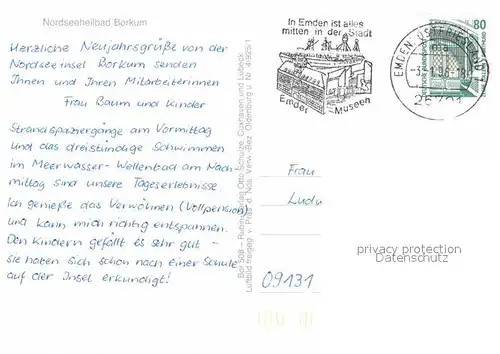 Nordseeheilbad Borkum
Herzliche Neujahrsgrüße von der
Nordseeinsel Borkum senden
Ihnen und Ihren Mitarbeiterinnen
Frau Baum und Kinder
Strandspaziergänge am Vormittag
und das dreistündige Schwimmen
im Meerwasser-Wellenbad am Nach-
mittag sind unsere Tageserlebnisse.
Ich genieße das Verwöhnen (Vollpension)
und kann mich richtig entspannen.
Den Kindern gefällt es sehr gut -
sie haben sich schon nach einer Schule
auf der Insel erkundigt!
Bo 508 - Ruthe-Verlag Otto Schulze, Cuxhaven und Lübeck
Luftbild freigeg. v. Präs. d. Nds. Verw.-Bez. Oldenburg u. Nr.
In Emden ist alles
mitten in der Stadt
Emder Museen
EMDEN, OSTFRIESL
80
Frau
Ludw
09131
privacy protection
Datenschutz